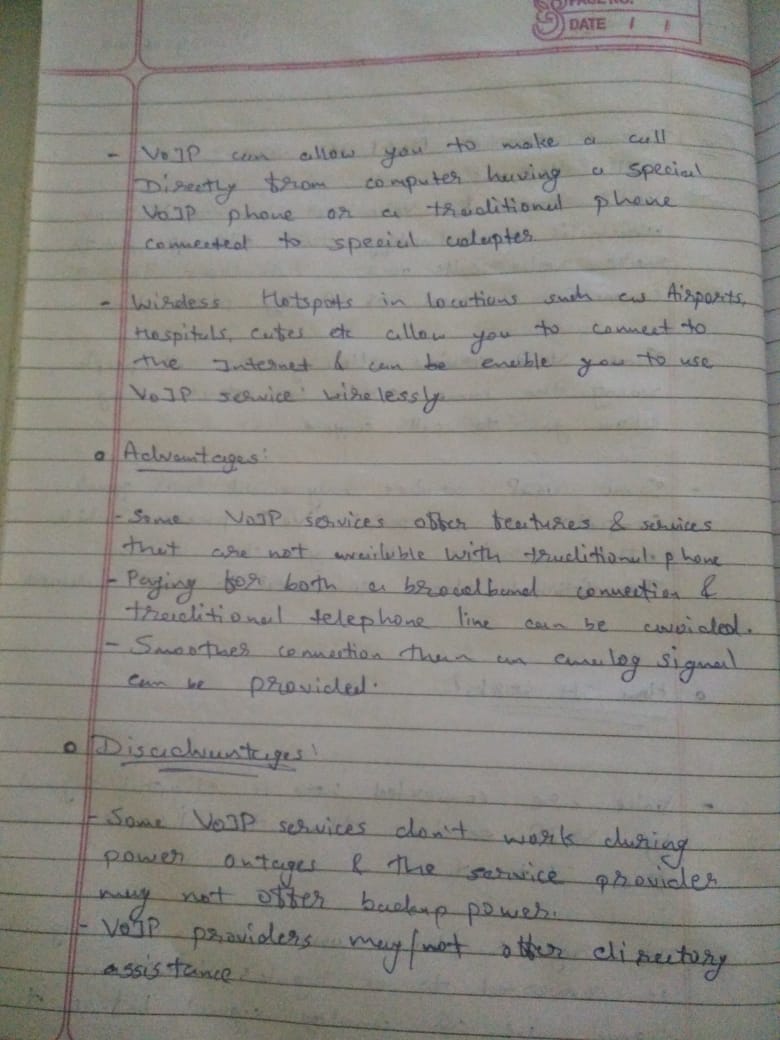 PAGE NO.
DATE / /
- VoIP can allow you to make a call
Directly from computer having a special
VoIP phone or a traditional phone
connected to special adapter
- Wireless Hotspots in locations such as Airports,
Hospitals, cafes etc allow you to connect to
the Internet & can be enable you to use
VoIP service wirelessly
Advantages:
- Some VoIP services offer features & services
that are not available with traditional phone
- Paying for both a broadband connection &
traditional telephone line can be avoided.
- Smoother connection than an analog signal
can be provided.
Disadvantages:
- Some VoIP services don't work during
power outages & the service provider
may not offer backup power.
- VoIP providers may/not offer directory
assistance